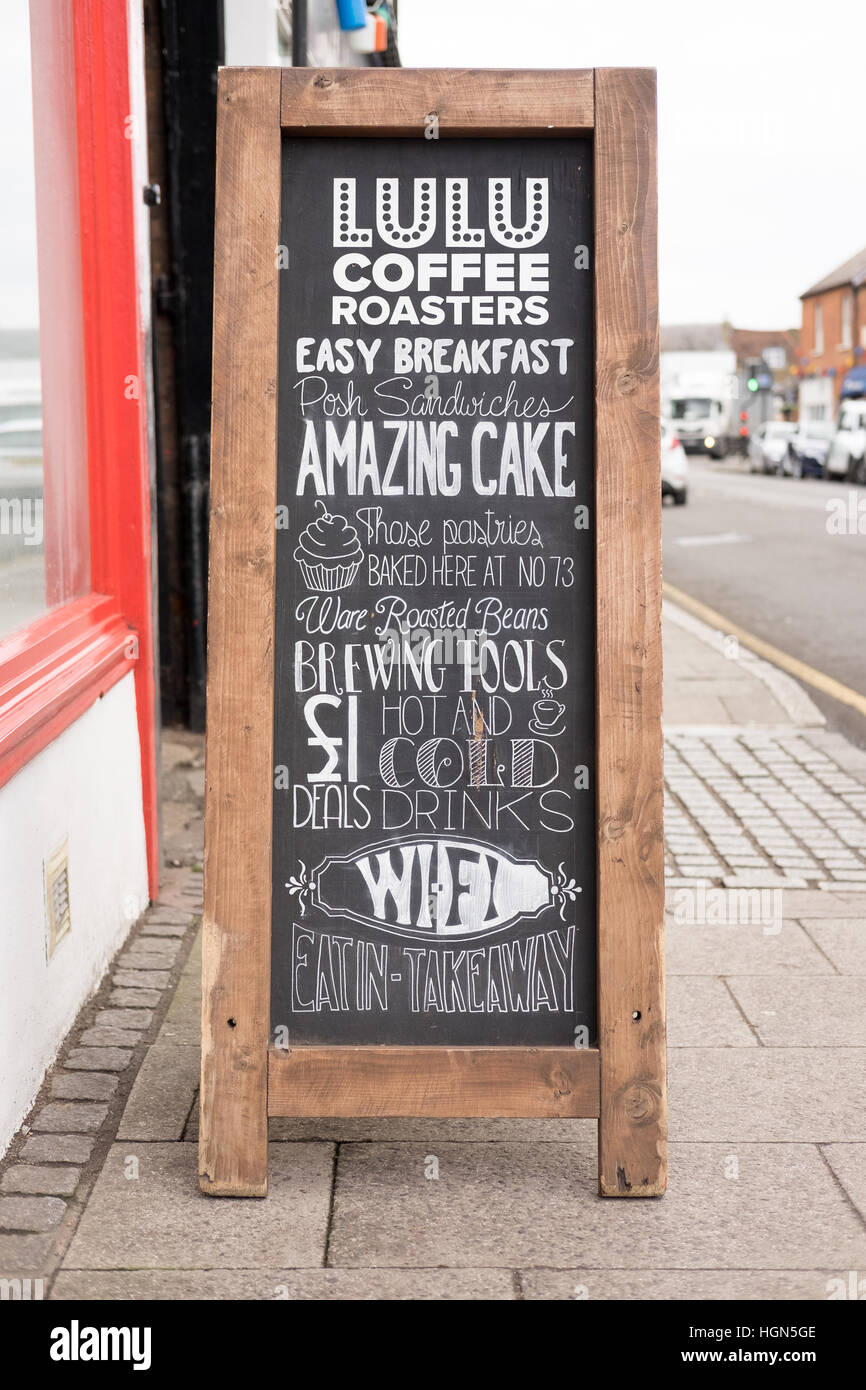 LULU
COFFEE
ROASTERS
EASY BREAKFAST
Posh Sandwiches
AMAZING CAKE
Those pastries
BAKED HERE AT NO 73
Ware Roasted Beans
BREWING TOOLS
£1 HOT AND
COLD
DEALS DRINKS
WI-FI
EAT IN - TAKEAWAY
alamy
Image ID: HGN5GE
www.alamy.com